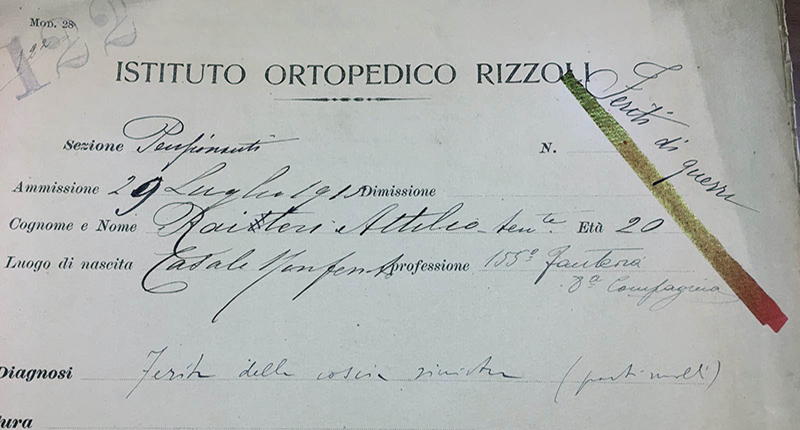 Mod. 28
122
122
ISTITUTO ORTOPEDICO RIZZOLI
Feriti di guerra
Sezione Pensionanti N.
Ammissione 29 Luglio 1915 Dimissione
Cognome e Nome Raiteri Attilio ten.te Età 20
Luogo di nascita Casale Monferrato professione 155° Fanteria
8a Compagnia
Diagnosi Ferita della coscia sinistra (parti molli)
ura